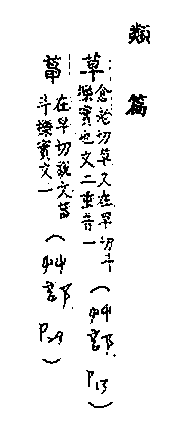 類篇
草 倉老切草又在早切斗
櫟實也文二重音一(艸部.P13)
䓔 在早切說文䓔
斗櫟實文一(艸部.P29)